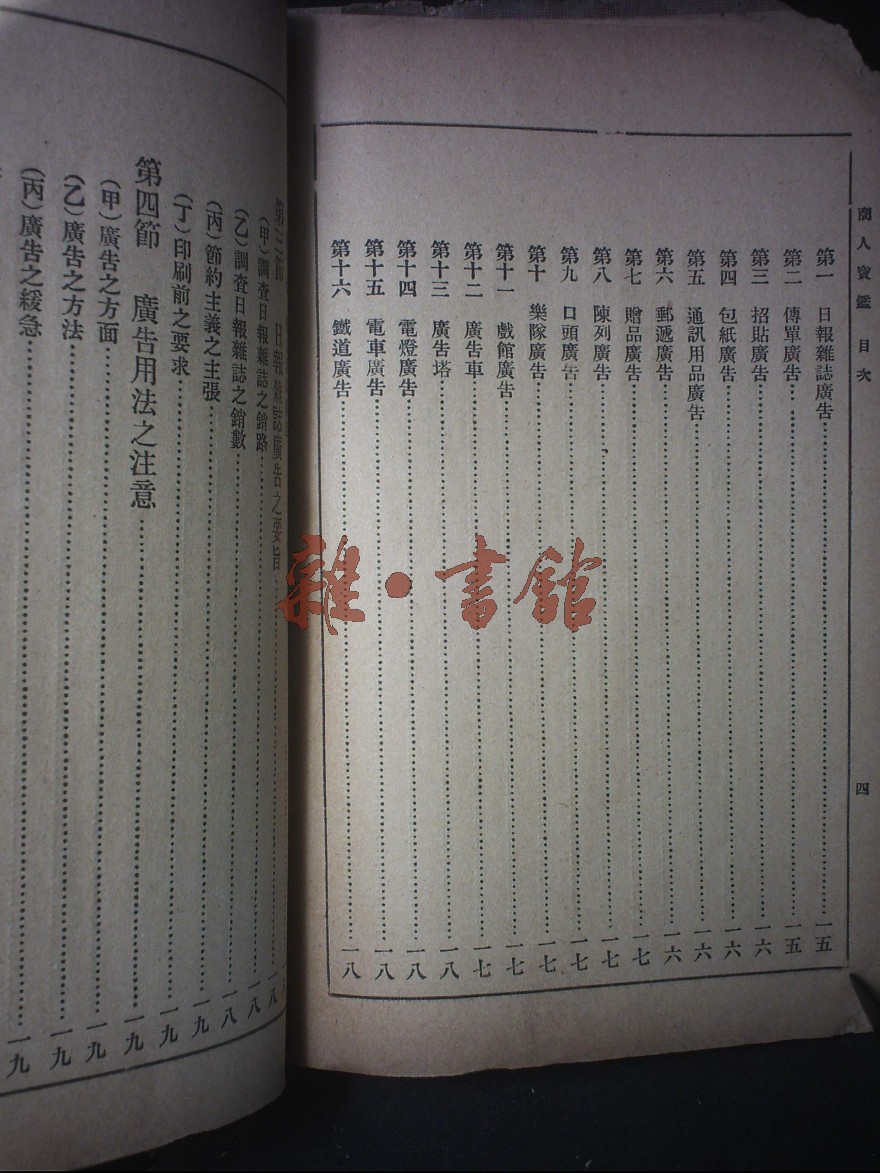 商人寶鑑 目次 四
第一 日報雜誌廣告……一五
第二 傳單廣告……一五
第三 招貼廣告……一六
第四 包紙廣告……一六
第五 通訊用品廣告……一六
第六 郵遞廣告……一六
第七 贈品廣告……一七
第八 陳列廣告……一七
第九 口頭廣告……一七
第十 樂隊廣告……一七
第十一 戲館廣告……一七
第十二 廣告車……一七
第十三 廣告塔……一八
第十四 電燈廣告……一八
第十五 電車廣告……一八
第十六 鐵道廣告……一八
第三節 日報雜誌廣告之要旨……一八
(甲)調查日報雜誌之銷路……一八
(乙)調查日報雜誌之銷數……一八
(丙)節約主義之主張……一九
(丁)印刷前之要求……一九
第四節 廣告用法之注意……一九
(甲)廣告之方面……一九
(乙)廣告之方法……一九
(丙)廣告之緩急……一九
雜·書館